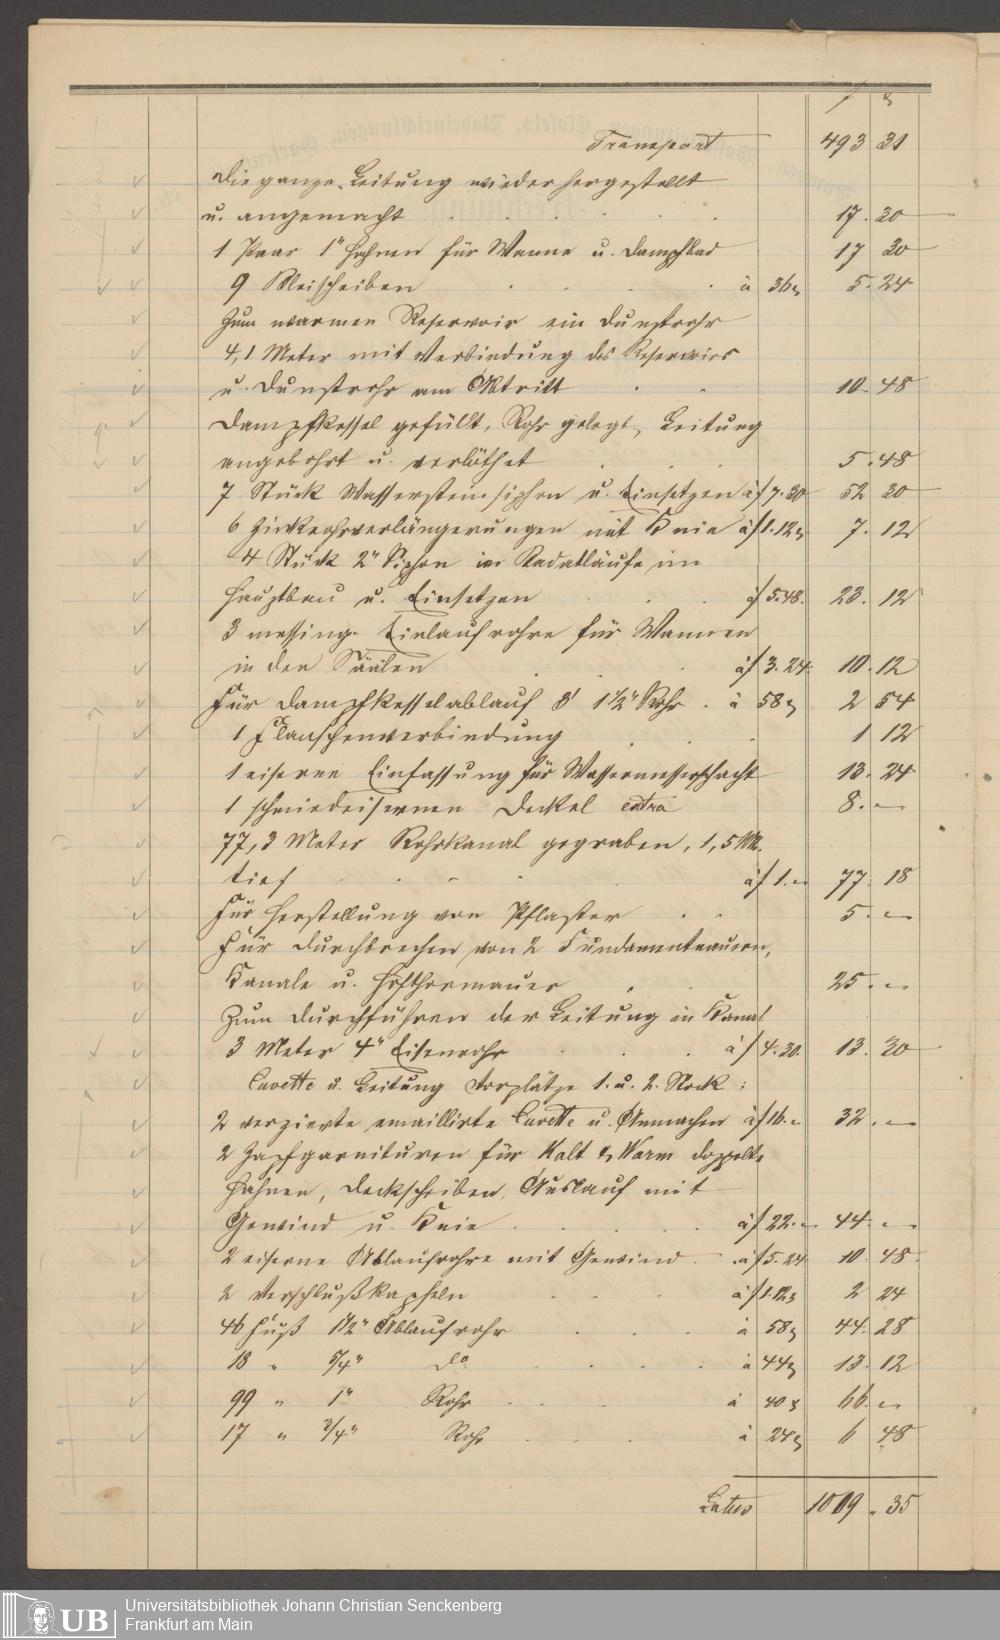 f x
Transport 493 31
Die ganze Leitung wieder hergestellt
u. angemacht 17. 30
1 Paar 1" Hahnen für Wanne u. Dampfbad 17 30
9 Bleischeiben à 36x 5. 24
Zum warmen Reservoir ein Dunstrohr
4,1 Meter mit Verbindung des Reservoirs
u. Dunstrohr am Abtritt 10. 48
Dampfkessel gefüllt, Rohr gelegt, Leitung
angebohrt u. verlöthet 5. 48
7 Stück Wasserstein siphon u. Einsetzen à f 7. 30 52 30
6 Zinkrohrverlängerungen mit Knie à f 1. 12x 7. 12
4 Stück 2" Siphon in Badabläufe im
Hauptbau u. Einsetzen à f 5. 48. 23. 12
3 messing. Einlaufrohre für Wannen
in den Säälen à f 3. 24. 10. 12
Für Dampfkesselablauf 3' 1½" Rohr à 58x 2 54
1 Flanschenverbindung 1 12
1 eiserne Einfassung für Wassermesserschacht 13. 24
1 schmiedeisernen Deckel extra 8. –
77,3 Meter Rohrkanal gegraben, 1,5 M.
tief à f 1. – 77. 18
Für Herstellung von Pflaster 5. –
Für Durchbrechen von 2 Fundamentmauern,
Kanale u. Hofthormauer 25. –
Zum Durchführen der Leitung in Kanal
3 Meter 4" Eisenrohr à f 4. 30. 13. 30
Cuvette u. Leitung Vorplätze 1. u. 2. Stock:
2 verzierte emaillirte Cuvette u. Anmachen à f 16. – 32. –
2 Zapfgarnituren für Kalt & Warm doppelte
Hahnen, Deckscheiben, Auslauf mit
Gewind u. Knie à f 22. – 44. –
2 eiserne Ablaufrohre mit Gewind à f 5. 24 10. 48.
2 Verschlußkapseln à f 1. 12x 2 24
46 Fuß 1½" Ablaufrohr à 58x 44. 28
18 " 5/4" do à 44x 13. 12
99 " 1" Rohr à 40x 66. –
17 " 3/4" Rohr à 24x 6 48
Latus 1019. 35
UB
Universitätsbibliothek Johann Christian Senckenberg
Frankfurt am Main